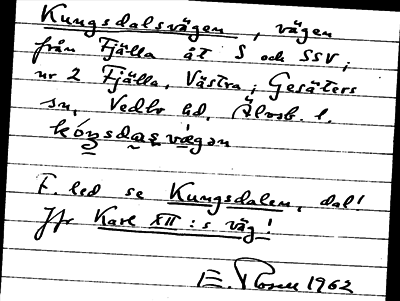 Kungsdalsvägen, vägen
från Fjälla åt S och SSV,
nr 2 Fjälla, Västra, Gesäters
sn, Vedbo hd, Älvsb. l.
kóŋsdas vägən
F. led se Kungsdalen, dal!
Jfr Karl XII:s väg!
E. 1962